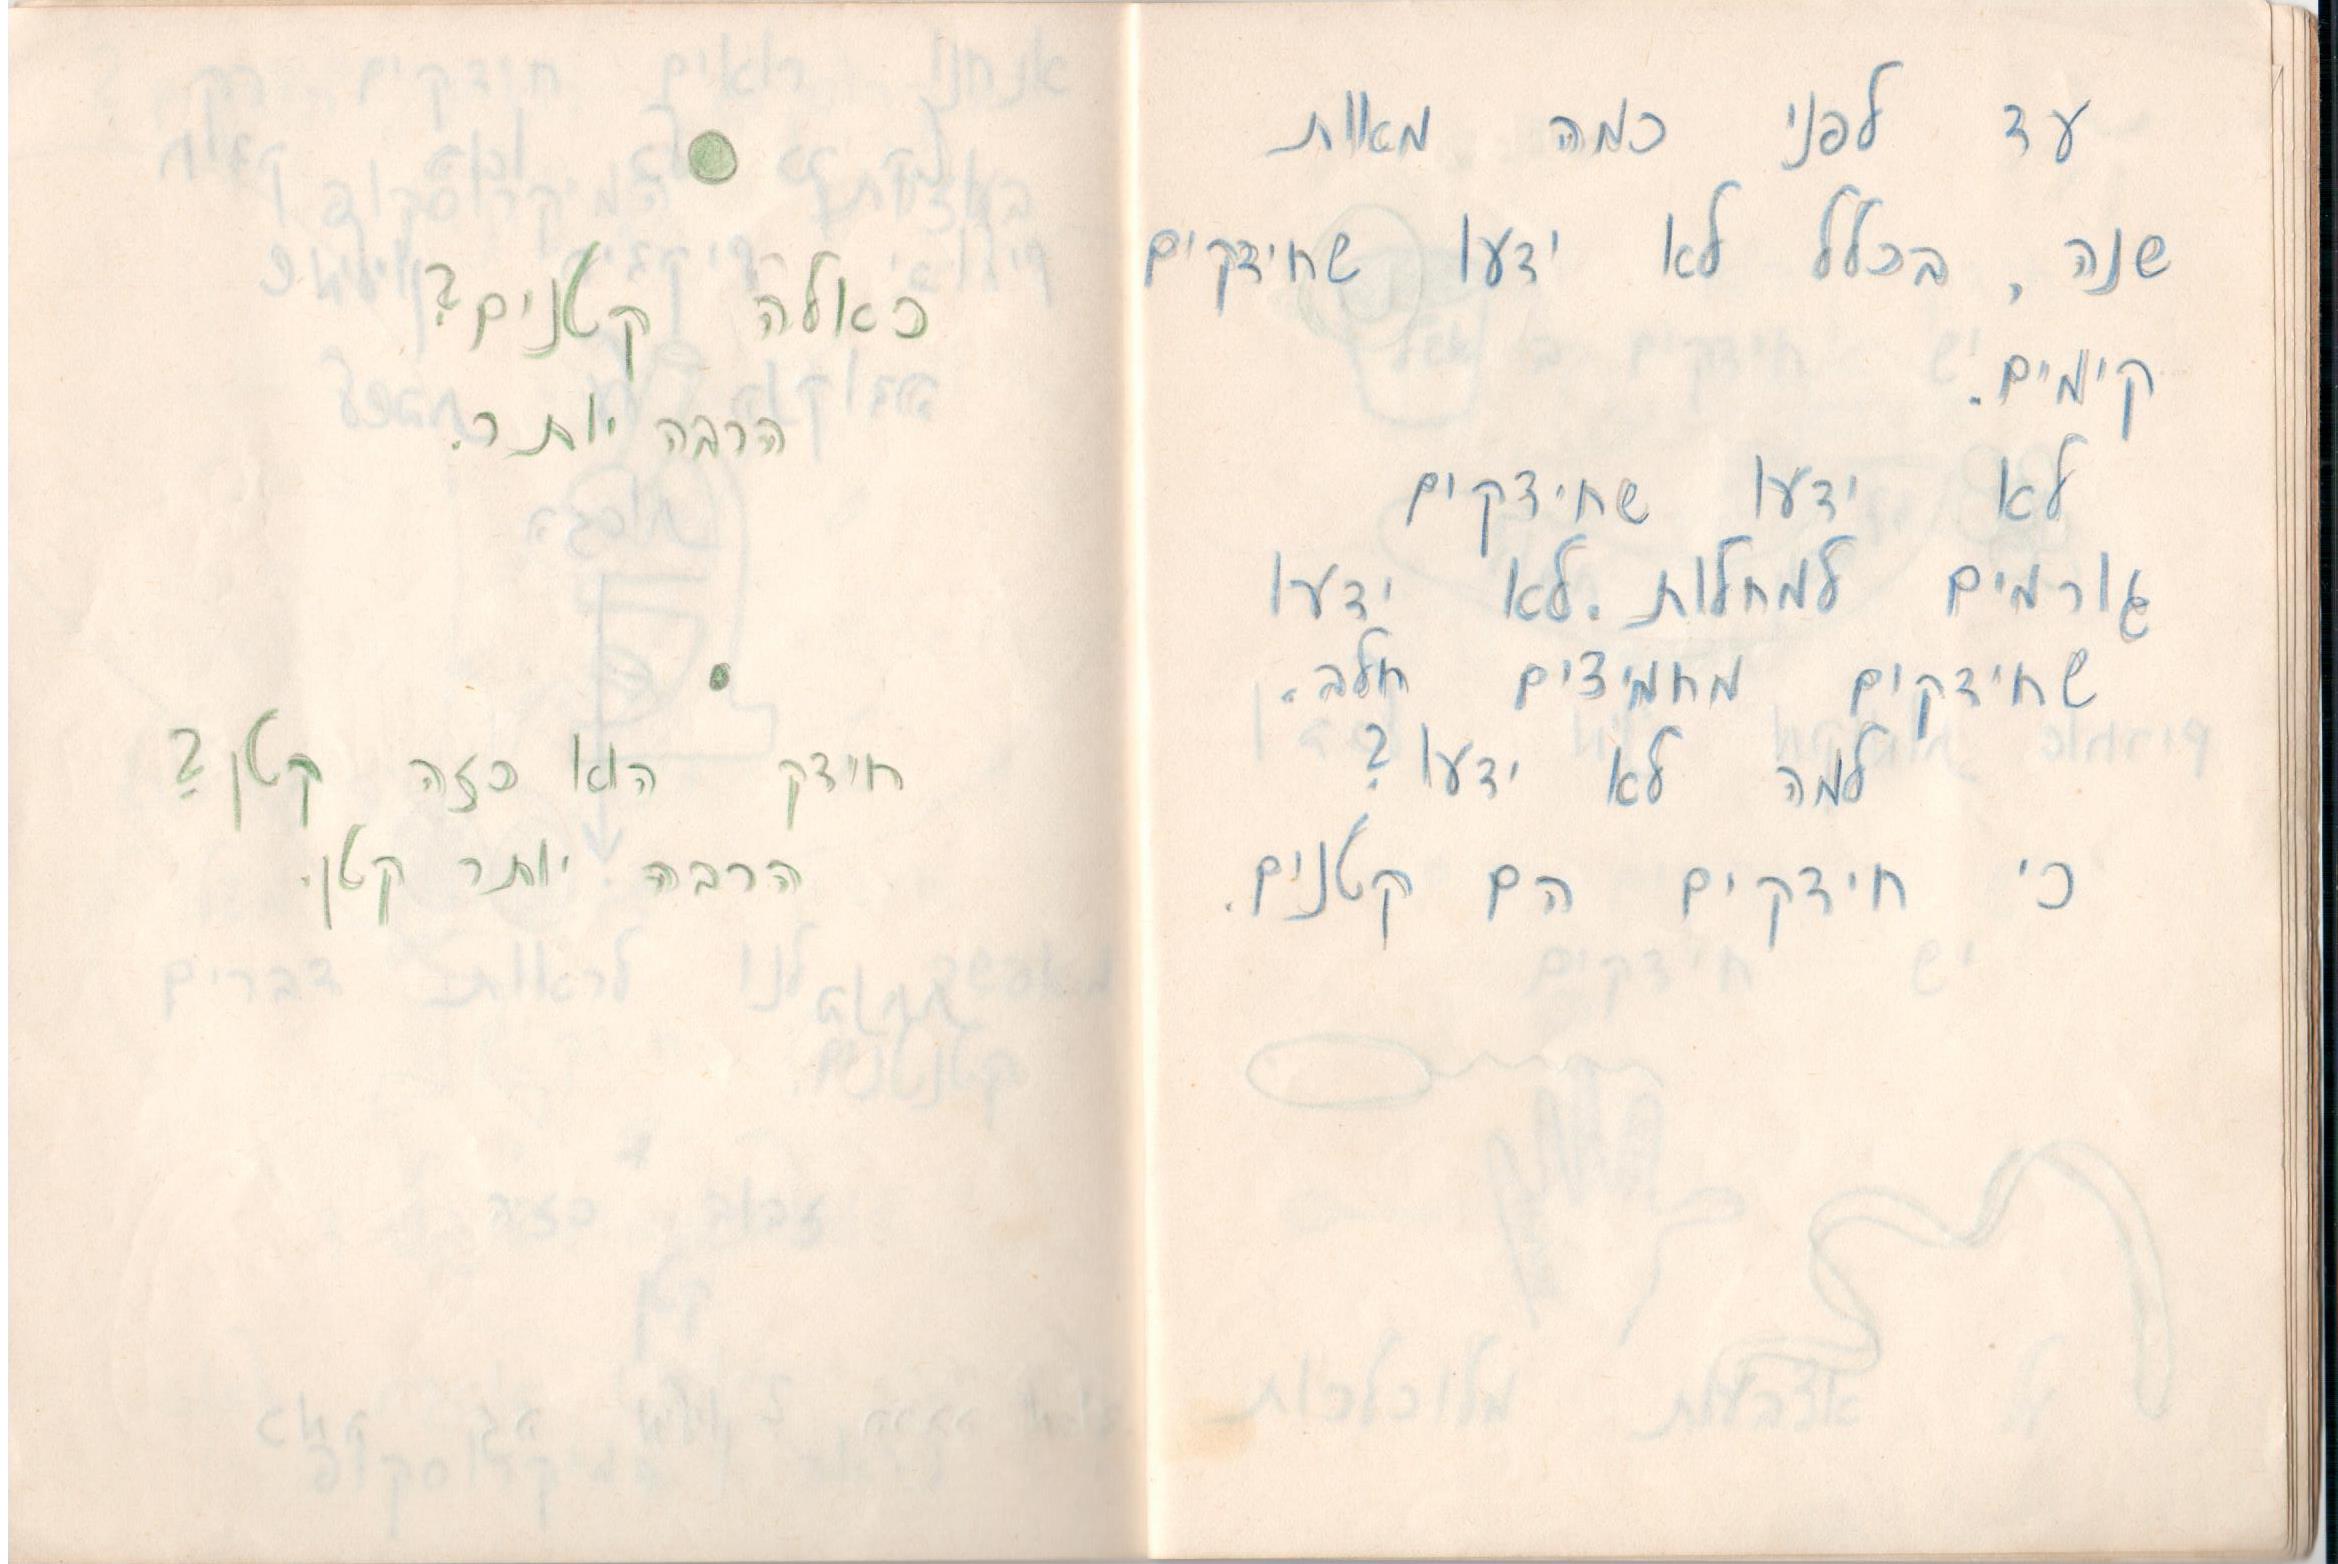 עד לפני כמה מאות
שנה, בכלל לא ידעו שחידקים
קימים.
לא ידעו שחידקים
גורמים למחלות. לא ידעו
שחידקים מחמיצים חלב.
למה לא ידעו?
כי חידקים הם קטנים.
כאלה קטנים?
הרבה יותר.
חידק הוא כזה קטן?
הרבה יותר קטן.